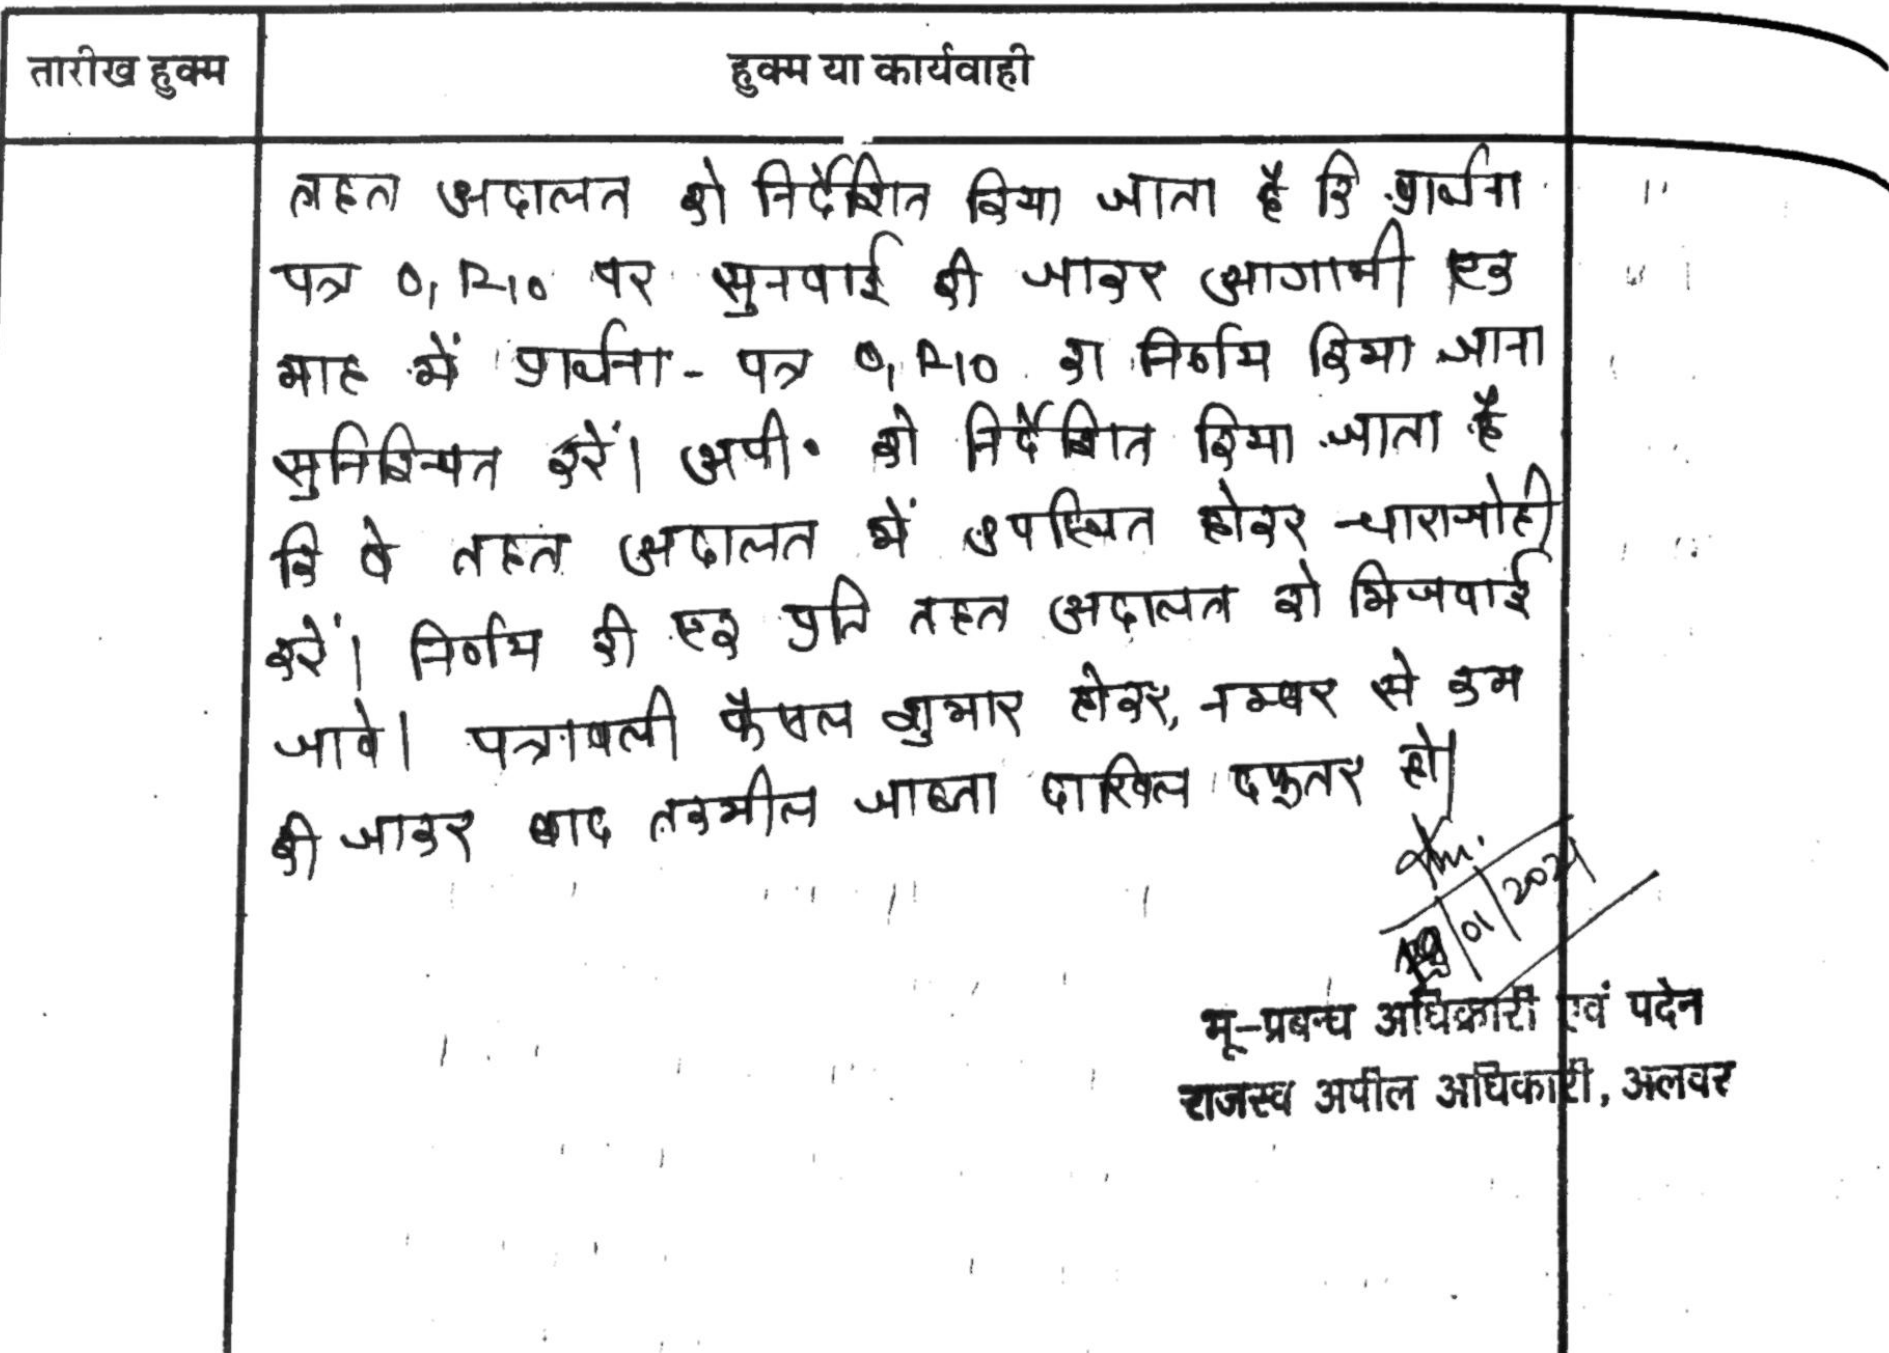 तारीख हुक्म
हुक्म या कार्यवाही
तहत अदालत को निर्देशित किया जाता है कि प्रार्थना
पत्र O1 R10 पर सुनवाई की जाकर आगामी एक
माह में प्रार्थना - पत्र O1 R10 का निर्णय किया जाना
सुनिश्चित करें। अपी० को निर्देशित किया जाता है
कि वे तहत अदालत में उपस्थित होकर चाराजोही
करें। निर्णय की एक प्रति तहत अदालत को भिजवाई
जावे। पत्रावली फैसल शुमार होकर, नम्बर से कम
की जाकर बाद तकमील जाब्ता दाखिल दफ्तर हो।
01/2021
भू-प्रबन्ध अधिकारी एवं पदेन
राजस्व अपील अधिकारी, अलवर